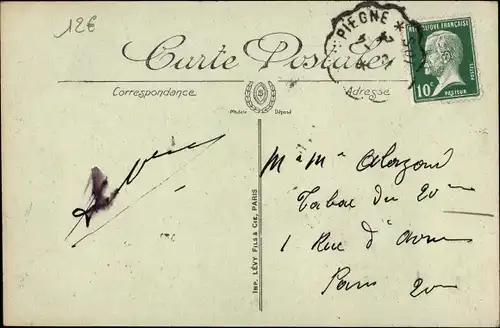 12€
PIEGNE *
REPUBLIQUE FRANÇAISE
POSTES
10c
PASTEUR
Carte Postale
Correspondance
Adresse
Modèle Déposé
Mr Mme
Tabac du 20ème
1 Rue d'
Paris 20
IMP. LÉVY FILS & CIE, PARIS